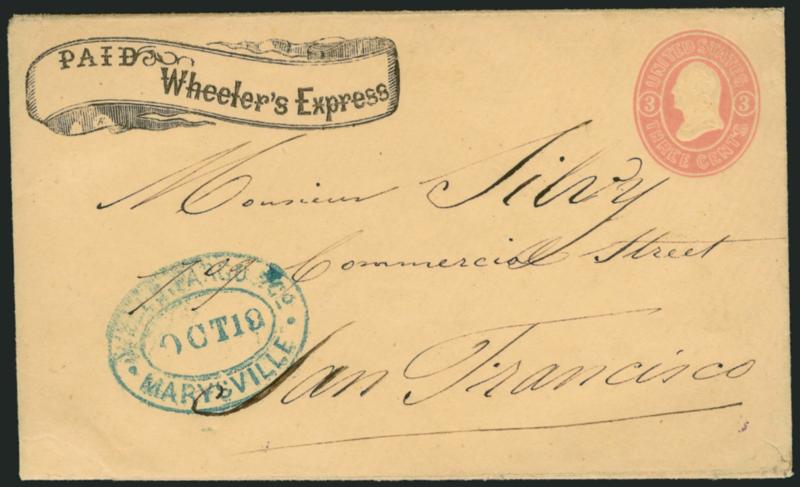 PAID
Wheeler's Express
UNITED STATES
3 3
THREE CENTS
Monsieur Silvy
709 Commercial Street
San Francisco
WELLS, FARGO & Co.
OCT 19
MARYSVILLE